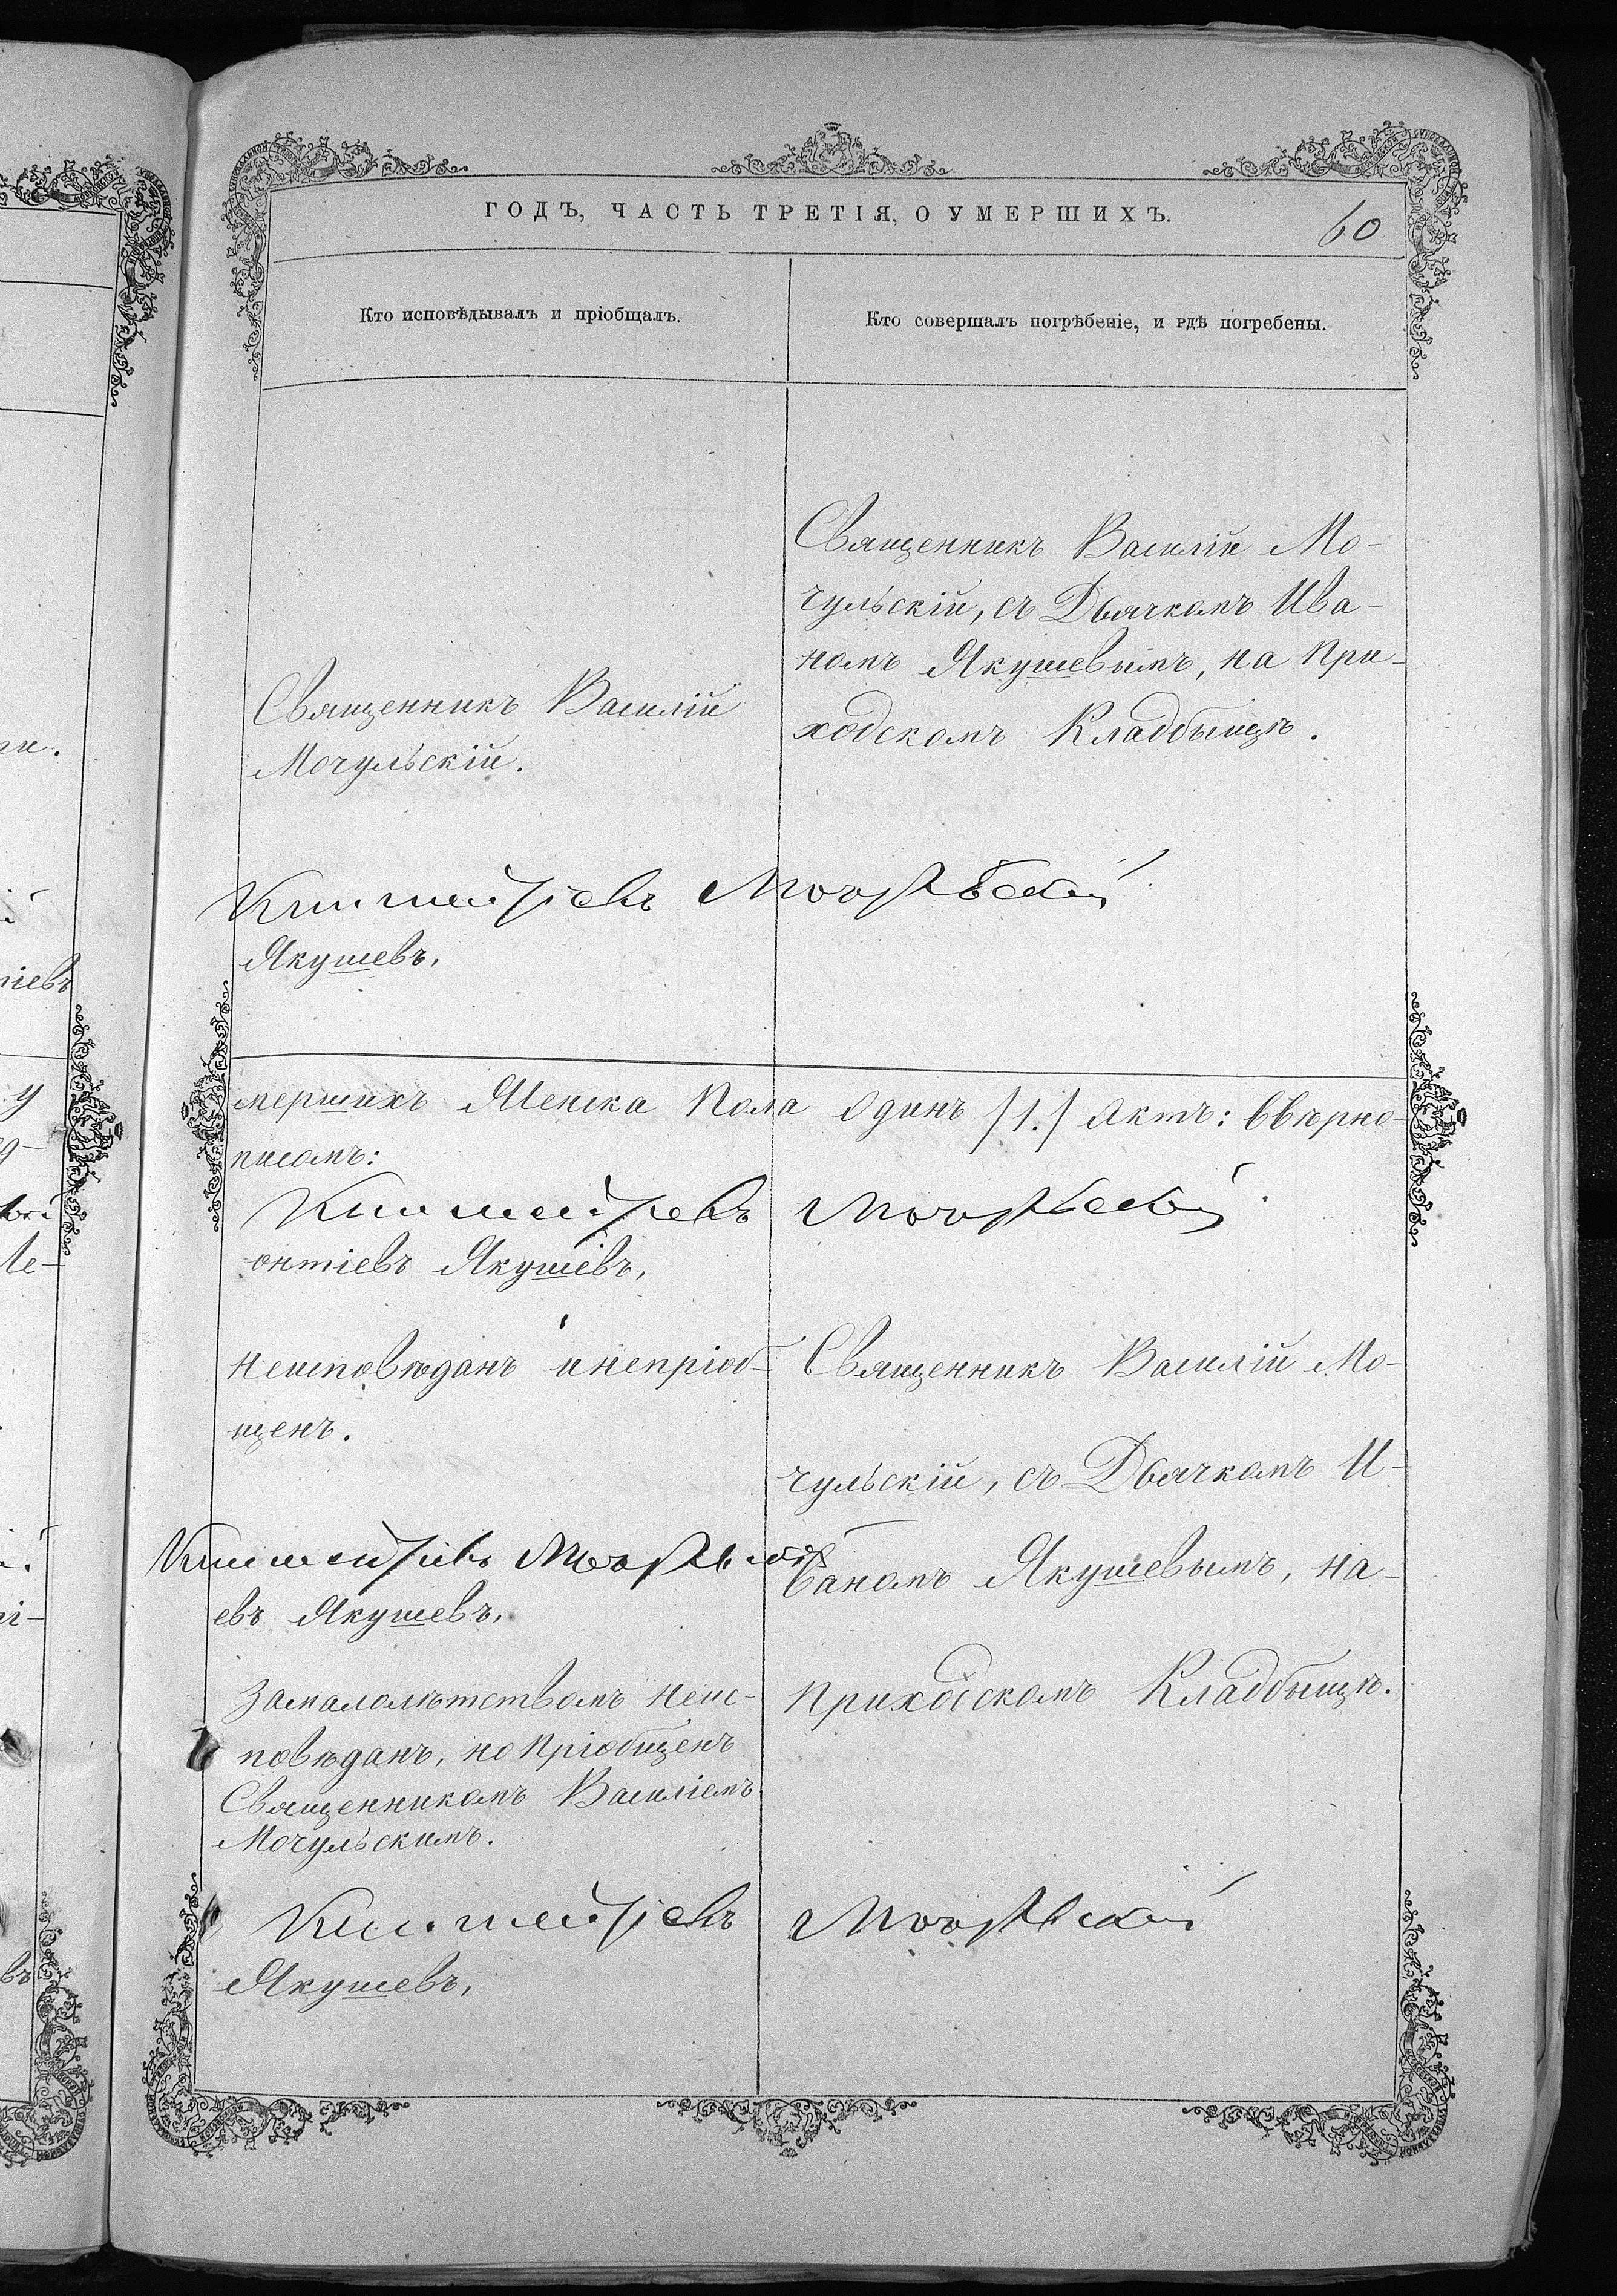 ГОДЪ, ЧАСТЬ ТРЕТІЯ, О УМЕРШИХЪ.
60
Кто исповѣдывалъ и пріобщалъ.
Кто совершалъ погрѣбеніе, и гдѣ погребены.
Священникъ Василій
Мочульскій.
Священникъ Василій Мо-
чульскій, съ Дьячкомъ Ива-
номъ Якушевымъ, на При-
ходскомъ Кладбыщѣ.
Мочульскій
Якушевъ,
мершихъ Женска Пола Одинъ /1./ Актъ: Ввѣрно-
писомъ:
Мочульскій
онтіевъ Якушевъ,
Неисповѣданъ и непріоб-
щенъ.
Священникъ Василій Мо-
чульскій, съ Дьячкомъ И-
ваномъ Якушевымъ, на-
Приходскомъ Кладбыщѣ.
Мочульскій
евъ Якушевъ,
Замалолѣтствомъ Неис-
повѣданъ, но Пріобщенъ
Священникомъ Василіемъ
Мочульскимъ.
Мочульскій
Якушевъ,